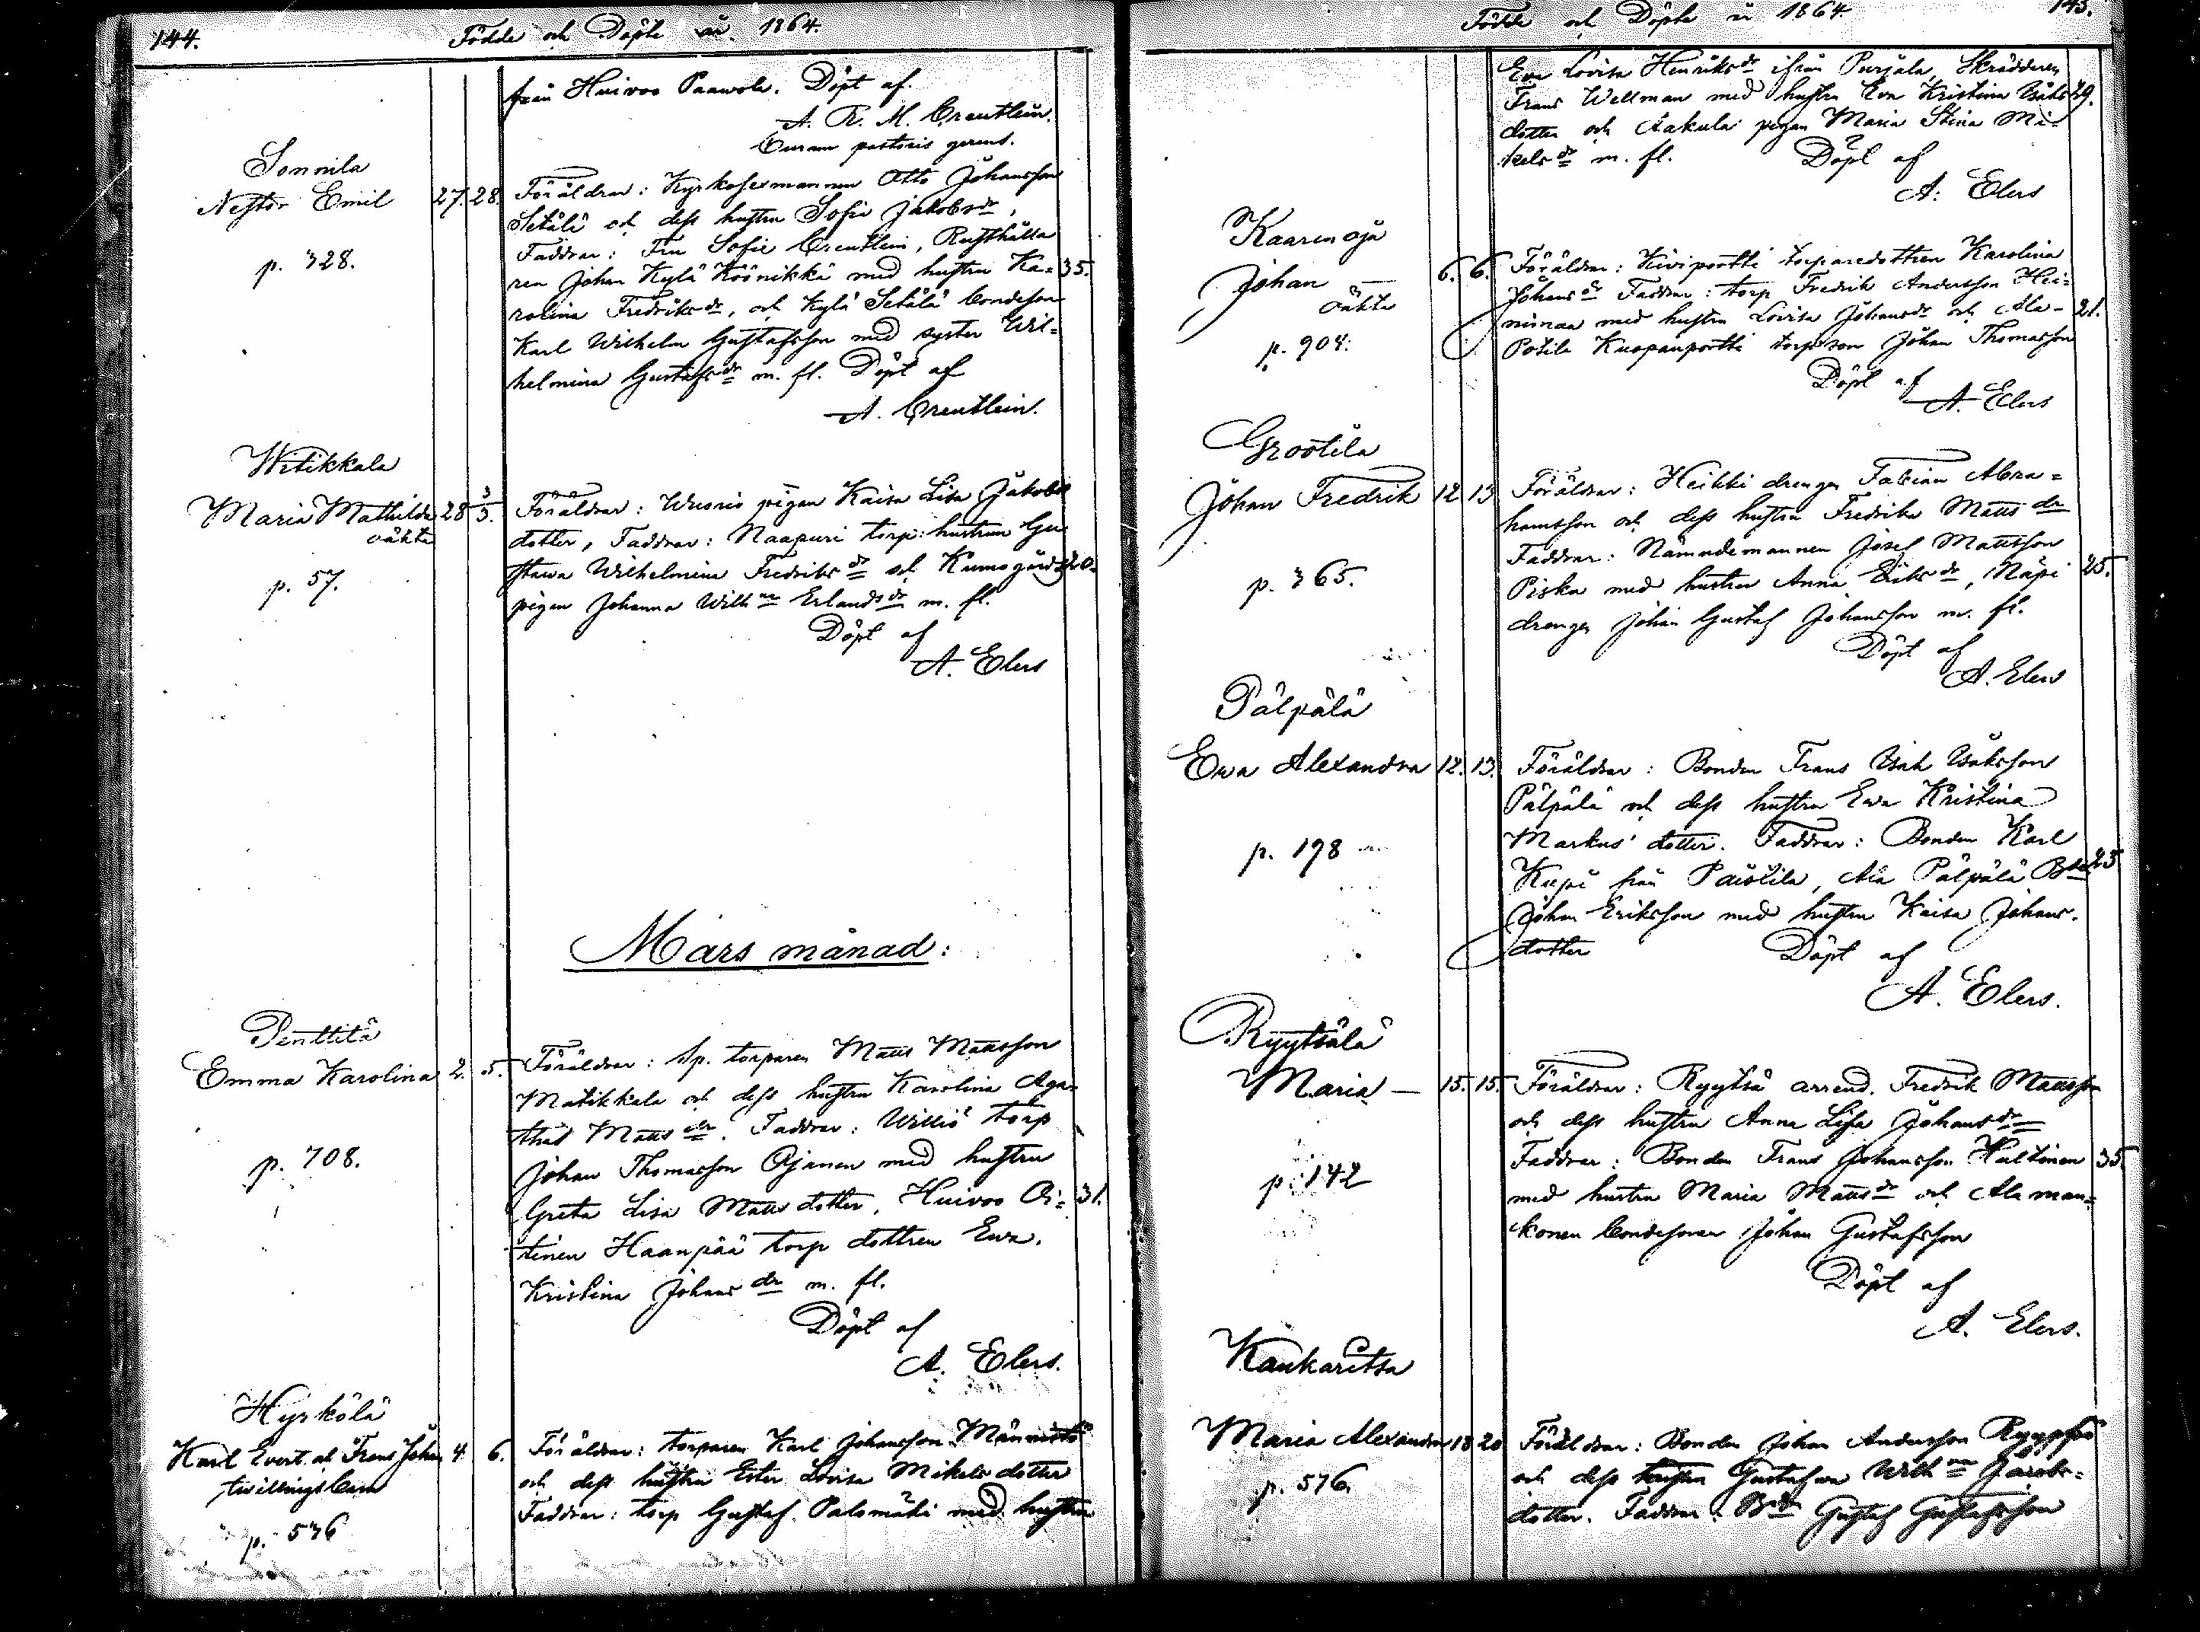 144.
Födde och Döpte år 1864.
från Huivoo Paawola. Döpt af
A. R. M. Creutlein.
Curam pastoris gerens.
Sonnila
Nestor Emil 27. 28.
p. 328.
Föräldrar: Kyrkosexmannen Otto Johansson
Setälä och dess hustru Sofia Jakobsdr,
Faddrar: Fru Sofie Creutlein, Rusthålla
ren Johan Kylä Köönikkä med hustru Ka= 35.
rolina Fredriksdr, och Kylä Setälä bondeson
Karl Wilhelm Gustafsson med syster Wil=
helmina Gustafsdr m. fl. Döpt af
A. Creutlein.
Witikkala
Maria Mathilda 28 3/3.
oäkta
p. 57.
Föräldrar: pigan Kaisa Lisa Jakobs
dotter, Faddrar: Naapuri torp: hustrun Gu
stawa Wilhelmina Fredriksdr och Kumogård 20.
pigan Johanna Wilhna Erlandsdr m. fl.
Döpt af
A. Elers
Mars månad:
Penttilä
Emma Karolina 2. 5.
p. 708.
Föräldrar: Sp. torparen Matts Mattsson
Matikkala och dess hustru Karolina Aga=
tha Mattsdr. Faddrar: Williö torp
Johan Thomasson Ojanen med hustru
Greta Lisa Matts dotter, Huivoo 31.
Haanpää torp dottren Ewa
Kristina Johansdr m. fl.
Döpt af
A. Elers.
Hyrkölä
Karl Evert och Frans Johan 4. 6.
tvillingsbarn
p. 536
Föräldrar: torparen Karl Johansson Männistö
och dess hustru Ester Lovisa Mikels dotter
Faddrar: torp Gustaf Palomäki med hustru
Födde och Döpte år 1864. 145.
Eva Lovisa Henriksdr ifrån Purjala, Skräddaren
Frans Wellman med hustru Eva Kristina Isaks 29.
dotter och Aakula pigan Maria Stina Mi=
kelsdr m. fl. Döpt af
A. Elers
Kaarenoja
Johan 6. 6.
oäkta
p. 904.
Föräldrar: Kiviportti torparedottren Karolina
Johansdr Faddrar: torp Fredrik Andersson Hei=
niinaa med hustru Lovisa Johansdr och Ala= 21.
Potila Kuopanportti torp son Johan Thomasson
Döpt af
A. Elers
Grootila
Johan Fredrik 12 13
p. 365.
Föräldrar: Heikki drengen Fabian Abra=
hamsson och dess hustru Fredrika Mattsdr
Faddrar: Nämndemannen Josef Mattsson
Piska med hustru Anna Eriksdr, Näpi 25.
drengen Johan Gustaf Johansson m. fl.
Döpt af
A. Elers
Pälpälä
Ewa Alexandra 12. 13.
p. 198
Föräldrar: Bonden Frans Isak Isaksson
Pälpälä och dess hustru Ewa Kristina
Markus dotter. Faddrar: Bonden Karl
Kupi från Päiötila, Ala Pälpälä Bdn 25
Johan Eriksson med hustru Kaisa Johans
dotter Döpt af
A. Elers.
Ryytsälä
Maria 15. 15.
p. 142
Föräldrar: Ryytsä arrend. Fredrik Mattsson
och dess hustru Anna Lisa Johansdr
Faddrar: Bonden Frans Johansson Hultinen 35
med hustru Maria Mattsdr och Ala man=
konen bondesonen Johan Gustafsson
Döpt af
A. Elers.
Kankaritsa
Maria Alexandra 18 20
p. 576.
Föräldrar: Bonden Johan Andersson Ryyppö
och dess hustru Gustafwa Wilhna Jakobs=
dotter. Faddrar: Bdn Gustaf Gustafsson